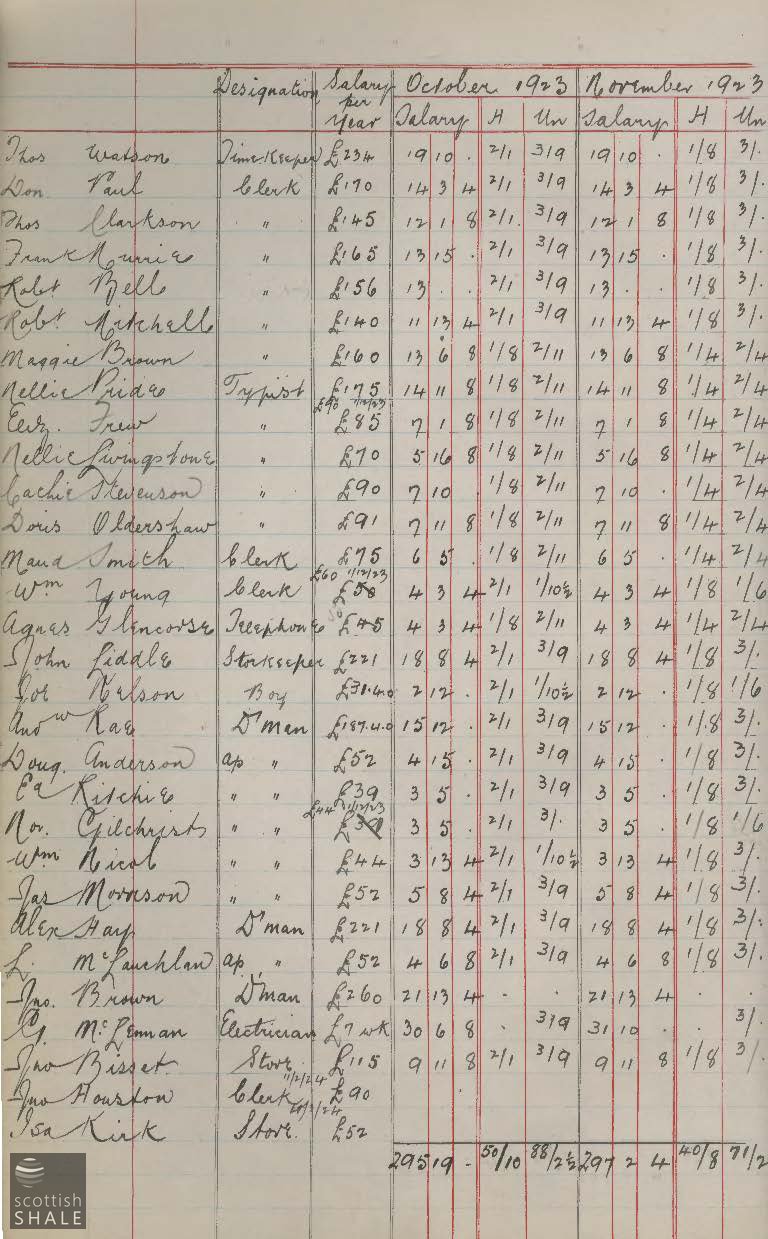 Designation Salary per Year October 1923 November 1923
Salary H Un Salary H Un
Thos Watson Time-Keeper £234 19 10 . 2/1 3/9 19 10 . 1/8 3/.
Don Paul Clerk £170 14 3 4 2/1 3/9 14 3 4 1/8 3/.
Thos Clarkson " £145 12 1 8 2/1. 3/9 12 1 8 1/8 3/.
Frank Murrie " £165 13 15 . 2/1 3/9 13 15 . 1/8 3/.
Robt Bell " £156 13 . . 2/1 3/9 13 . . 1/8 3/.
Robt Mitchell " £140 11 13 4 2/1 3/9 11 13 4 1/8 3/.
Maggie Brown " £160 13 6 8 1/8 2/11 13 6 8 1/4 2/4
Nellie Pride Typist £175 14 11 8 1/8 2/11 14 11 8 1/4 2/4
£90 1/12/23
Eliz. Frew " £85 7 1 8 1/8 2/11 7 1 8 1/4 2/4
Nellie Livingstone " £70 5 16 8 1/8 2/11 5 16 8 1/4 2/4
Stevenson " £90 7 10 1/8 2/11 7 10 . 1/4 2/4
Doris Oldershaw " £91 7 11 8 1/8 2/11 7 11 8 1/4 2/4
Maud Smith Clerk £75 6 5 1/8 2/11 6 5 . 1/4 2/4
£60 1/12/23
Wm Young Clerk £50 4 3 4 2/1 1/10½ 4 3 4 1/8 1/6
Agnes Glencorse Telephone 50 £45 4 3 4 1/8 2/11 4 3 4 1/4 2/4
John Liddle Storekeeper £221 18 8 4 2/1 3/9 18 8 4 1/8 3/.
Joe Nelson Boy £31.4.0 2 12 . 2/1 1/10½ 2 12 . 1/8 1/6
Andw Rae D'man £187.4.0 15 12 . 2/1 3/9 15 12 . 1/8 3/.
Doug. Anderson ap " £52 4 15 . 2/1 3/9 4 15 . 1/8 3/.
Ed Ritchie " " £39 3 5 . 2/1 3/9 3 5 . 1/8 3/.
£44 1/12/23
Nor. Gilchrist " " £39 3 5 . 2/1 3/. 3 5 . 1/8 1/6
Wm Nicol " " £44 3 13 4 2/1 1/10½ 3 13 4 1/8 3/.
Jas Morrison " " £52 5 8 4 2/1 3/9 5 8 4 1/8 3/.
Alex Hay D'man £221 18 8 4 2/1 3/9 18 8 4 1/8 3/.
L. McLauchlan ap " £52 4 6 8 2/1 3/9 4 6 8 1/8 3/.
Jno. Brown D'man £260 21 13 4 . . 21 13 4 . .
G. McLennan Electrician £7 wk 30 6 8 . 3/9 31 10 . . 3/.
Jno Bisset Store £115 9 11 8 2/1 3/9 9 11 8 1/8 3/.
11/2/24
Jno Houston Clerk £90
Isa Kirk Store. £52
295 19 . 50/10 88/2½ 297 2 4 40/8 71/2
scottish
SHALE